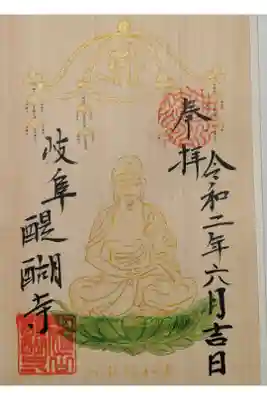 奉拝
令和二年六月吉日
岐阜
醍醐寺